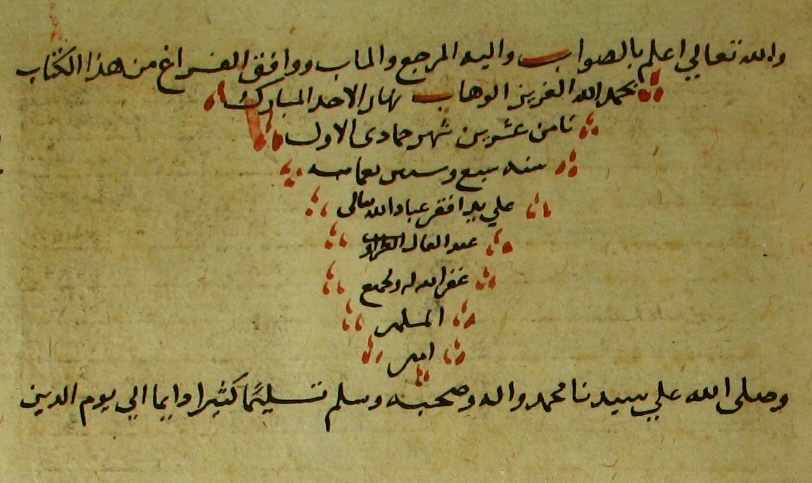 والله تعالي اعلم بالصواب واليه المرجع والماب ووافق الفراغ من هذا الكتاب
بحمد الله العزيز الوهاب نهار الاحد المبارك
ثامن عشرين شهر جمادى الاول
سنه سبع وستين
علي يد افقر عباد الله تعالى
عبد العال
غفر الله له ولجميع
المسلمين
امين
وصلى الله علي سيدنا محمد واله وصحبه وسلم تسليمًا كثيرا دايما الي يوم الدين